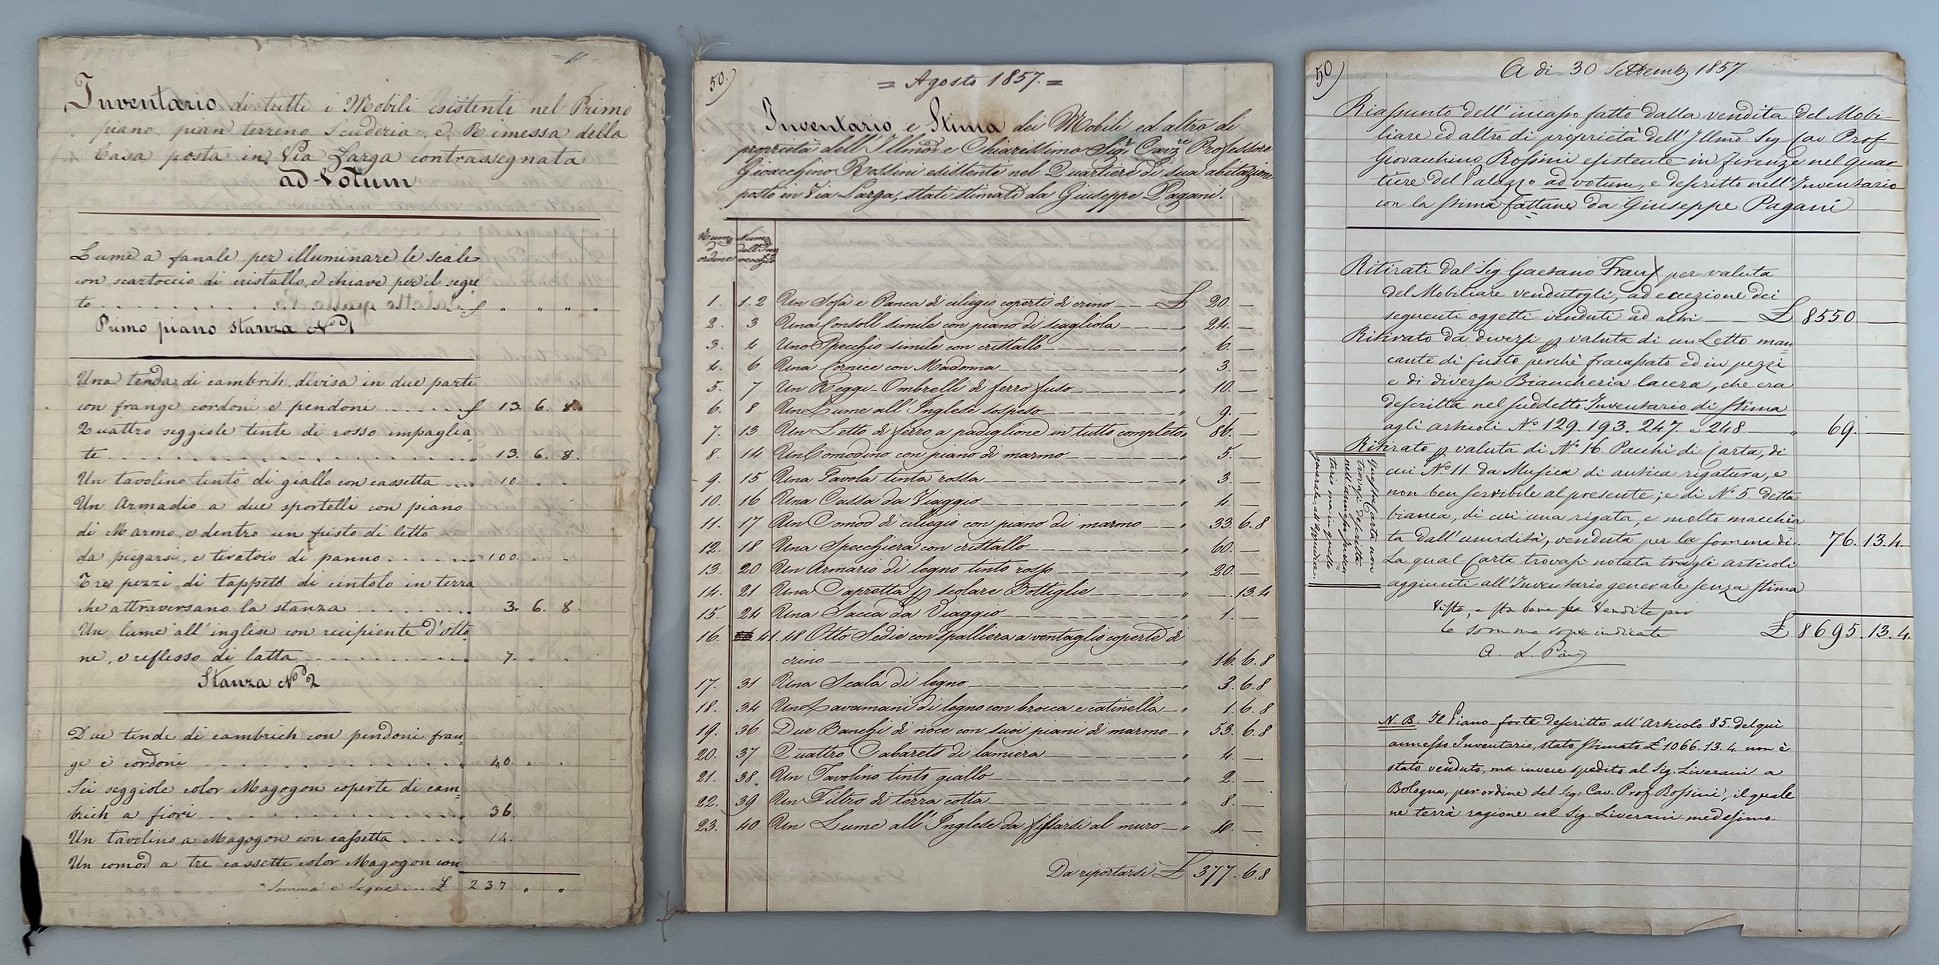 Inventario di tutti i Mobili esistenti nel Primo
piano pian terreno Scuderia, e Rimessa della
Casa posta in Via Larga contrassegnata
ad Votum
Lume a fanale per illuminare le scale
con scartoccio di cristallo, e chiave per il segre
to
Primo piano stanza N.º 1
Una tenda di cambrich divisa in due parti
con frange cordoni e pendoni £ 13. 6. 8.
Quattro seggiole tinte di rosso impaglia
te 13. 6. 8.
Un tavolino tinto di giallo con cassetta 10
Un Armadio a due sportelli con piano
di Marmo, e dentro un fusto di letto
da piegarsi, e tiratoio di panno 100
Tre pezzi di tappeto di cintolo in terra
che attraversano la stanza 3. 6. 8.
Un lume all'inglese con recipiente d'otto
ne, e reflesso di latta 7.
Stanza N.º 2
Due tende di cambrich con pendoni fran
ge e cordoni 40.
Sei seggiole color Magogon coperte di cam
brich a fiori 36
Un tavolino a Magogon con cassetta 14.
Un comod a tre cassette color Magogon con
Somma e Segue £ 237 " "
50)
= Agosto 1857. =
Inventario e Stima dei Mobili ed altro di
proprietà dell'Illmo e Chiarissimo Sigr Cavre Professore
Gioacchino Rossini esistente nel Quartiere di sua abitazione
posto in Via Larga, stati stimati da Giuseppe Pagani.
1. 1.2 Un Sofà e Panca di ciliegio coperti di crino £ 20. —
2. 3 Una Consoll simile con piano di scagliola " 24. —
3. 4 Uno Specchio simile con cristallo " 6. —
4. 6 Una Cornice con Madonna " 3. —
5. 7 Un Reggi Ombrelli di ferro fuso " 10. —
6. 8 Un Lume all'Inglese sospeso " 9. —
7. 13 Un Letto di ferro a padiglione in tutto completo " 86. —
8. 14 Un Comodino con piano di marmo " 5. —
9. 15 Una Tavola tinta rossa " 3. —
10. 16 Una Cassa da Viaggio " 4. —
11. 17 Un Comod di ciliegio con piano di marmo " 33. 6. 8
12. 18 Una Specchiera con cristallo " 60. —
13. 20 Un Armario di legno tinto rosso " 20. —
14. 21 Una Capretta p scolare Bottiglie " . 13. 4
15. 24 Una Sacca da Viaggio " 1. —
16. 41.48 Otto Sedie con spalliera a ventaglio coperte di
crino " 16. 6. 8
17. 31 Una Scala di legno " 3. 6. 8
18. 34 Un Lavamani di legno con brocca e catinella " 1. 6. 8
19. 36 Due Banchi di noce con suoi piani di marmo " 53. 6. 8
20. 37 Quattro Cabarets di lamiera " 4. —
21. 38. Un Tavolino tinto giallo " 2. —
22. 39 Un Filtro di terra cotta " 8. —
23. 40 Un Lume all'Inglese da fissarsi al muro "
Da riportarsi £ 377. 6. 8
50)
A di 30 Settemb 1857
Riassunto dell'incasso fatto dalla vendita del Mobi-
liare ed altro di proprietà dell'Illmo Sig Cav Prof
Giovacchino Rossini esistente in firenze nel quar
tiere del Palazzo ad votum, e descritto nell'Inventario
con la stima fattane da Giuseppe Pagani
Ritirati dal Sig Gaetano per valuta
del Mobiliare vendutogli, ad eccezione dei
seguenti oggetti venduti ad altri £ 8550
Ritirato da diversi p valuta di un Letto man
cante di fusto perchè fracassato ed in pezzi
e di diversa Biancheria lacera, che era
descritta nel suddetto Inventario di stima
agli articoli Nº 129. 193. 247. e 248 " 69. —
Ritirato p valuta di Nº 16 Pacchi di Carta, di
cui Nº 11. da Musica di antica rigatura, e
non ben servibile al presente; e di Nº 5. detta
bianca, di cui una rigata, e molto macchia
ta dall'umidità, venduta per la somma di 76. 13. 4
La qual Carta trovasi notata tragli articoli
aggiunti all'Inventario generale senza stima
Visto, e sta bene per vendite per
le somme sopra indicate £ 8695. 13. 4.
N.B. Il Piano-forte descritto all'Articolo 85. del qui
annesso Inventario, stato stimato £ 1066. 13. 4 non è
stato venduto, ma invece spedito al Sig. Liverani a
Bologna, per ordine del Sig. Cav. Prof Rossini, il quale
ne terrà ragione col Sig. Liverani medesimo.